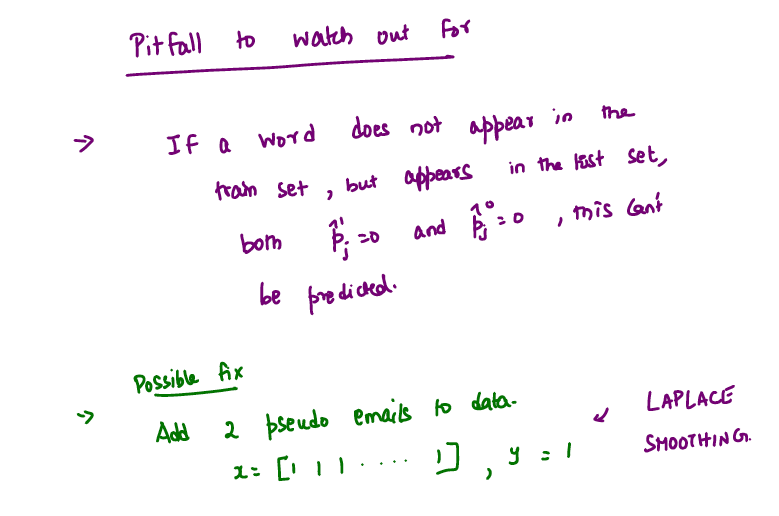 Pitfall to watch out for
→ If a word does not appear in the
train set, but appears in the test set,
both p̂ⱼ¹ = 0 and p̂ⱼ⁰ = 0, this can't
be predicted.
Possible fix
→ Add 2 pseudo emails to data.
x = [1 1 1 ..... 1], y = 1
↙ LAPLACE
SMOOTHING.